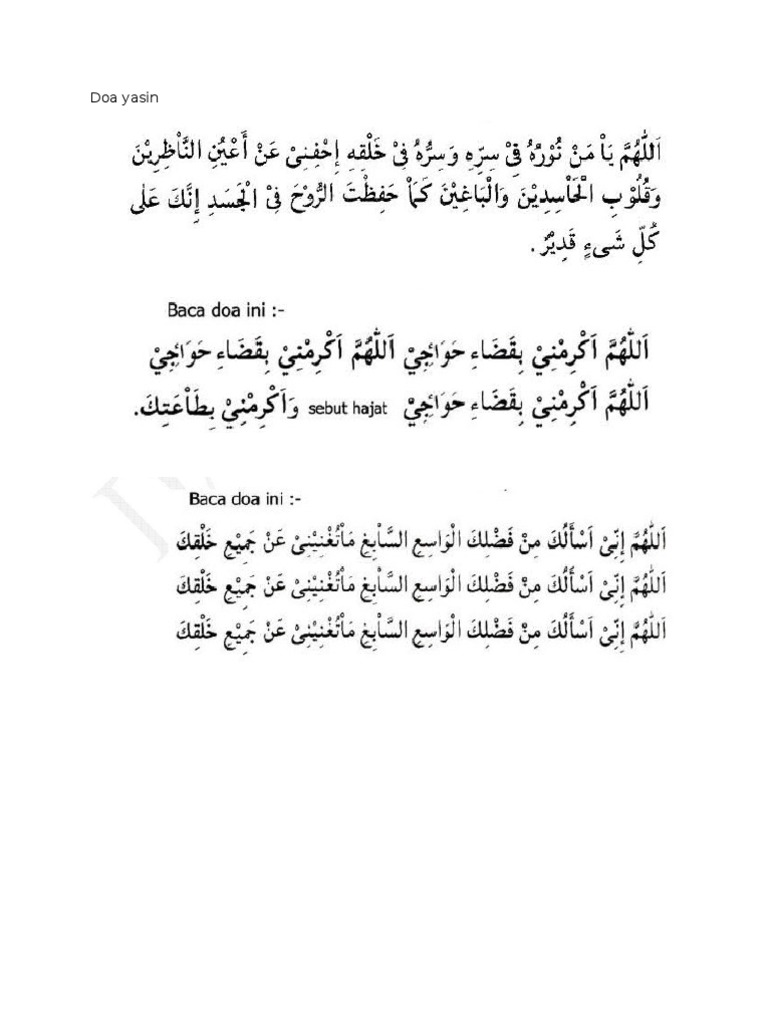 Doa yasin
اَللّٰهُمَّ يَاْ مَنْ نُوْرُهُ فِيْ سِرِّهِ وَسِرُّهُ فِيْ خَلْقِهِ إِخْفِنِيْ عَنْ أَعْيُنِ النَّاْظِرِيْنَ
وَقُلُوْبِ الْحَاْسِدِيْنَ وَالْبَاْغِيْنَ كَمَاْ حَفِظْتَ الرُّوْحَ فِيْ الْجَسَدِ إِنَّكَ عَلٰى
كُلِّ شَىءٍ قَدِيْرٌ .
Baca doa ini :-
اَللّٰهُمَّ اَكْرِمْنِيْ بِقَضَاءِ حَوَائِجِيْ اَللّٰهُمَّ اَكْرِمْنِيْ بِقَضَاءِ حَوَائِجِيْ
اَللّٰهُمَّ اَكْرِمْنِيْ بِقَضَاءِ حَوَائِجِيْ sebut hajat وَاَكْرِمْنِيْ بِطَاْعَتِكَ.
Baca doa ini :-
اَللّٰهُمَّ إِنِّيْ اَسْأَلُكَ مِنْ فَضْلِكَ الْوَاسِعِ السَّاْبِغِ مَاْتُغْنِيْنِيْ عَنْ جَمِيْعِ خَلْقِكَ
اَللّٰهُمَّ إِنِّيْ اَسْأَلُكَ مِنْ فَضْلِكَ الْوَاسِعِ السَّاْبِغِ مَاْتُغْنِيْنِيْ عَنْ جَمِيْعِ خَلْقِكَ
اَللّٰهُمَّ إِنِّيْ اَسْأَلُكَ مِنْ فَضْلِكَ الْوَاسِعِ السَّاْبِغِ مَاْتُغْنِيْنِيْ عَنْ جَمِيْعِ خَلْقِكَ